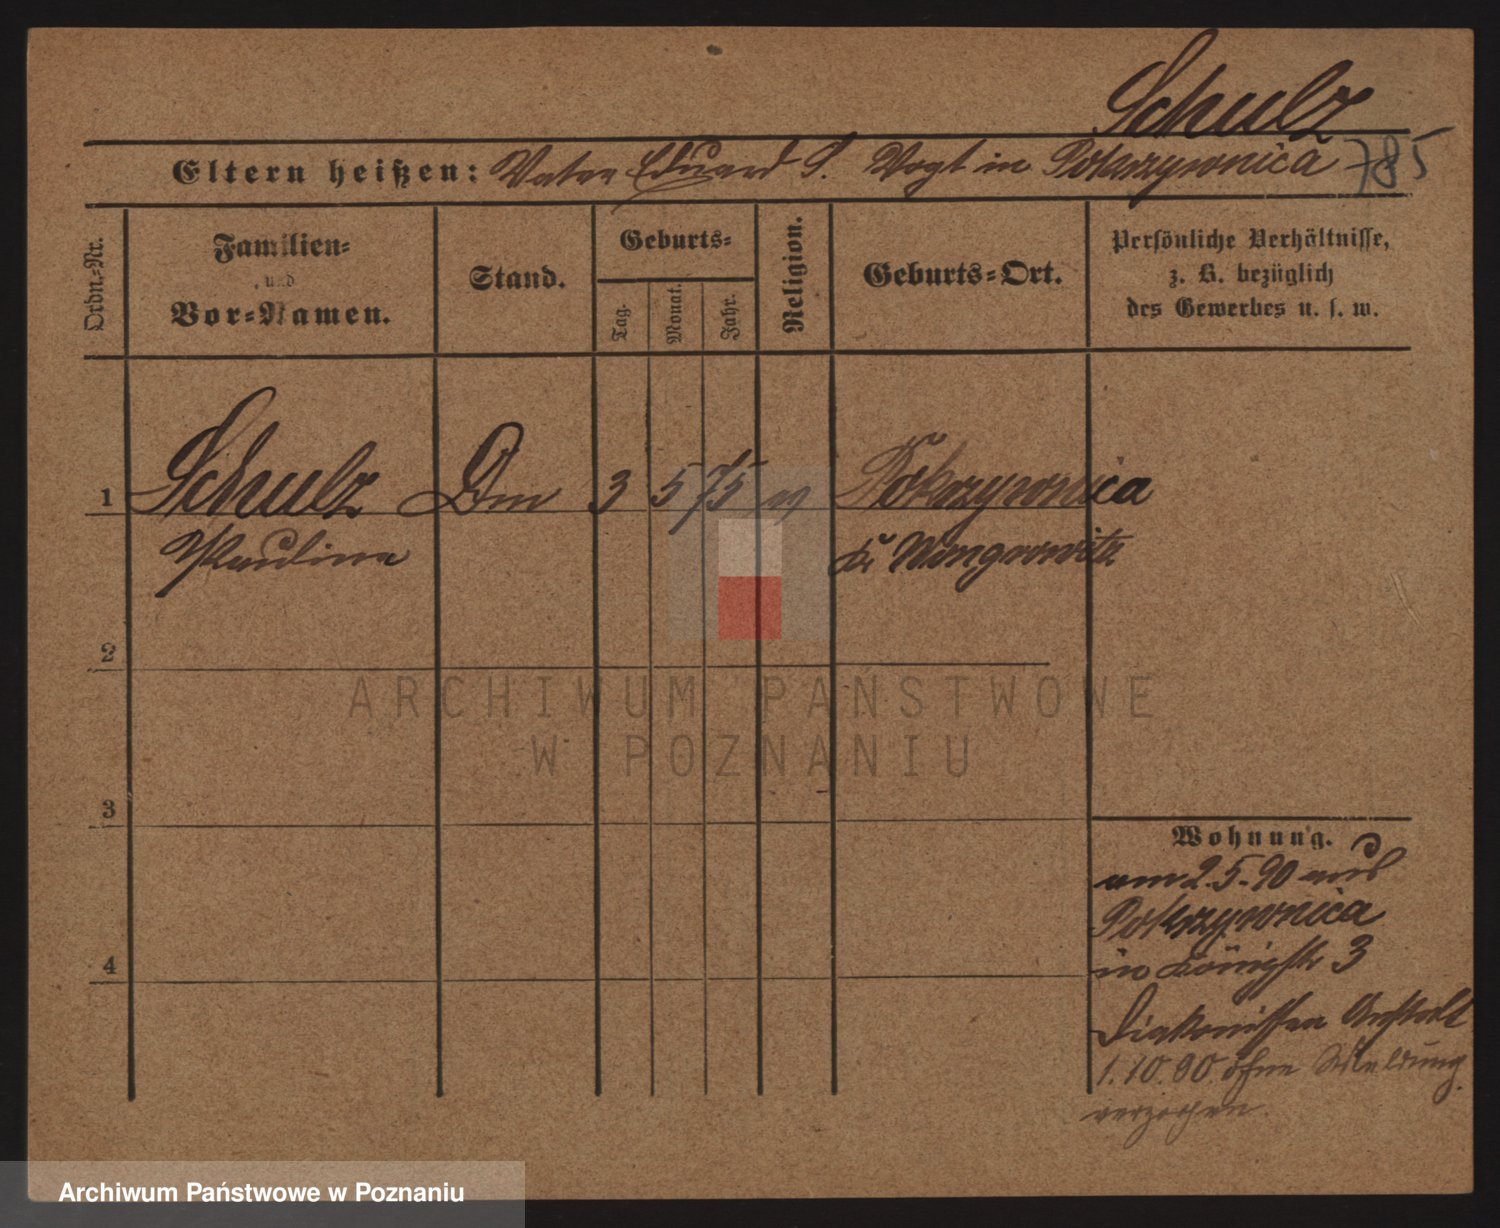 Schulz
Eltern heißen: Vater Eduard S. Vogt in Pokrzywnica 785
Ordn.-Nr.
Familien-
und
Vor-Namen.
Stand.
Geburts-
Tag.
Monat.
Jahr.
Religion.
Geburts-Ort.
Persönliche Verhältnisse,
z. B. bezüglich
des Gewerbes u. s. w.
1 Schulz 3 5 75 Pokrzywnica
Pauline Kr Wongrowitz
2
ARCHIWUM PAŃSTWOWE
W POZNANIU
3
4
Wohnung.
am 2.5.90 aus
Pokrzywnica
in Königstr 3
Diakonissen Anstalt
1.10.90 ohne Meldung
verzogen.
Archiwum Państwowe w Poznaniu